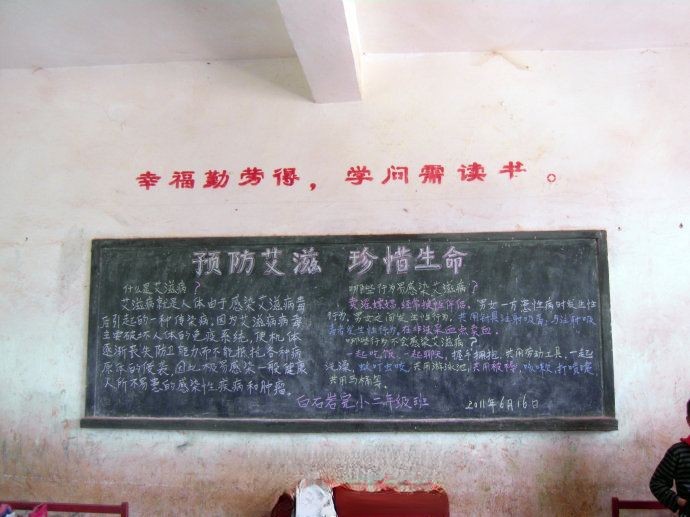 幸福勤劳得，学问需读书。
预防艾滋 珍惜生命
什么是艾滋病？
艾滋病就是人体由于感染艾滋病毒
后引起的一种传染病，因为艾滋病病毒
主要破坏人体的免疫系统，使机体
逐渐丧失防卫能力而不能抵抗各种病
原体的侵袭，因此极易感染一般健康
人所不易患的感染性疾病和肿瘤。
哪些行为易感染艾滋病？
男女一方患性病时发生性
行为，男女之间发生性行为，共用针具注射吸毒，与注射吸
毒者发生性行为，在非法采血点卖血。
哪些行为不会感染艾滋病？
一起吃饭，一起聊天，握手拥抱，共用劳动工具，一起
洗澡，蚊叮虫咬，共用游泳池，共用被褥，咳嗽，打喷嚏
共用马桶等。
白石岩完小二年级班
2011年6月16日